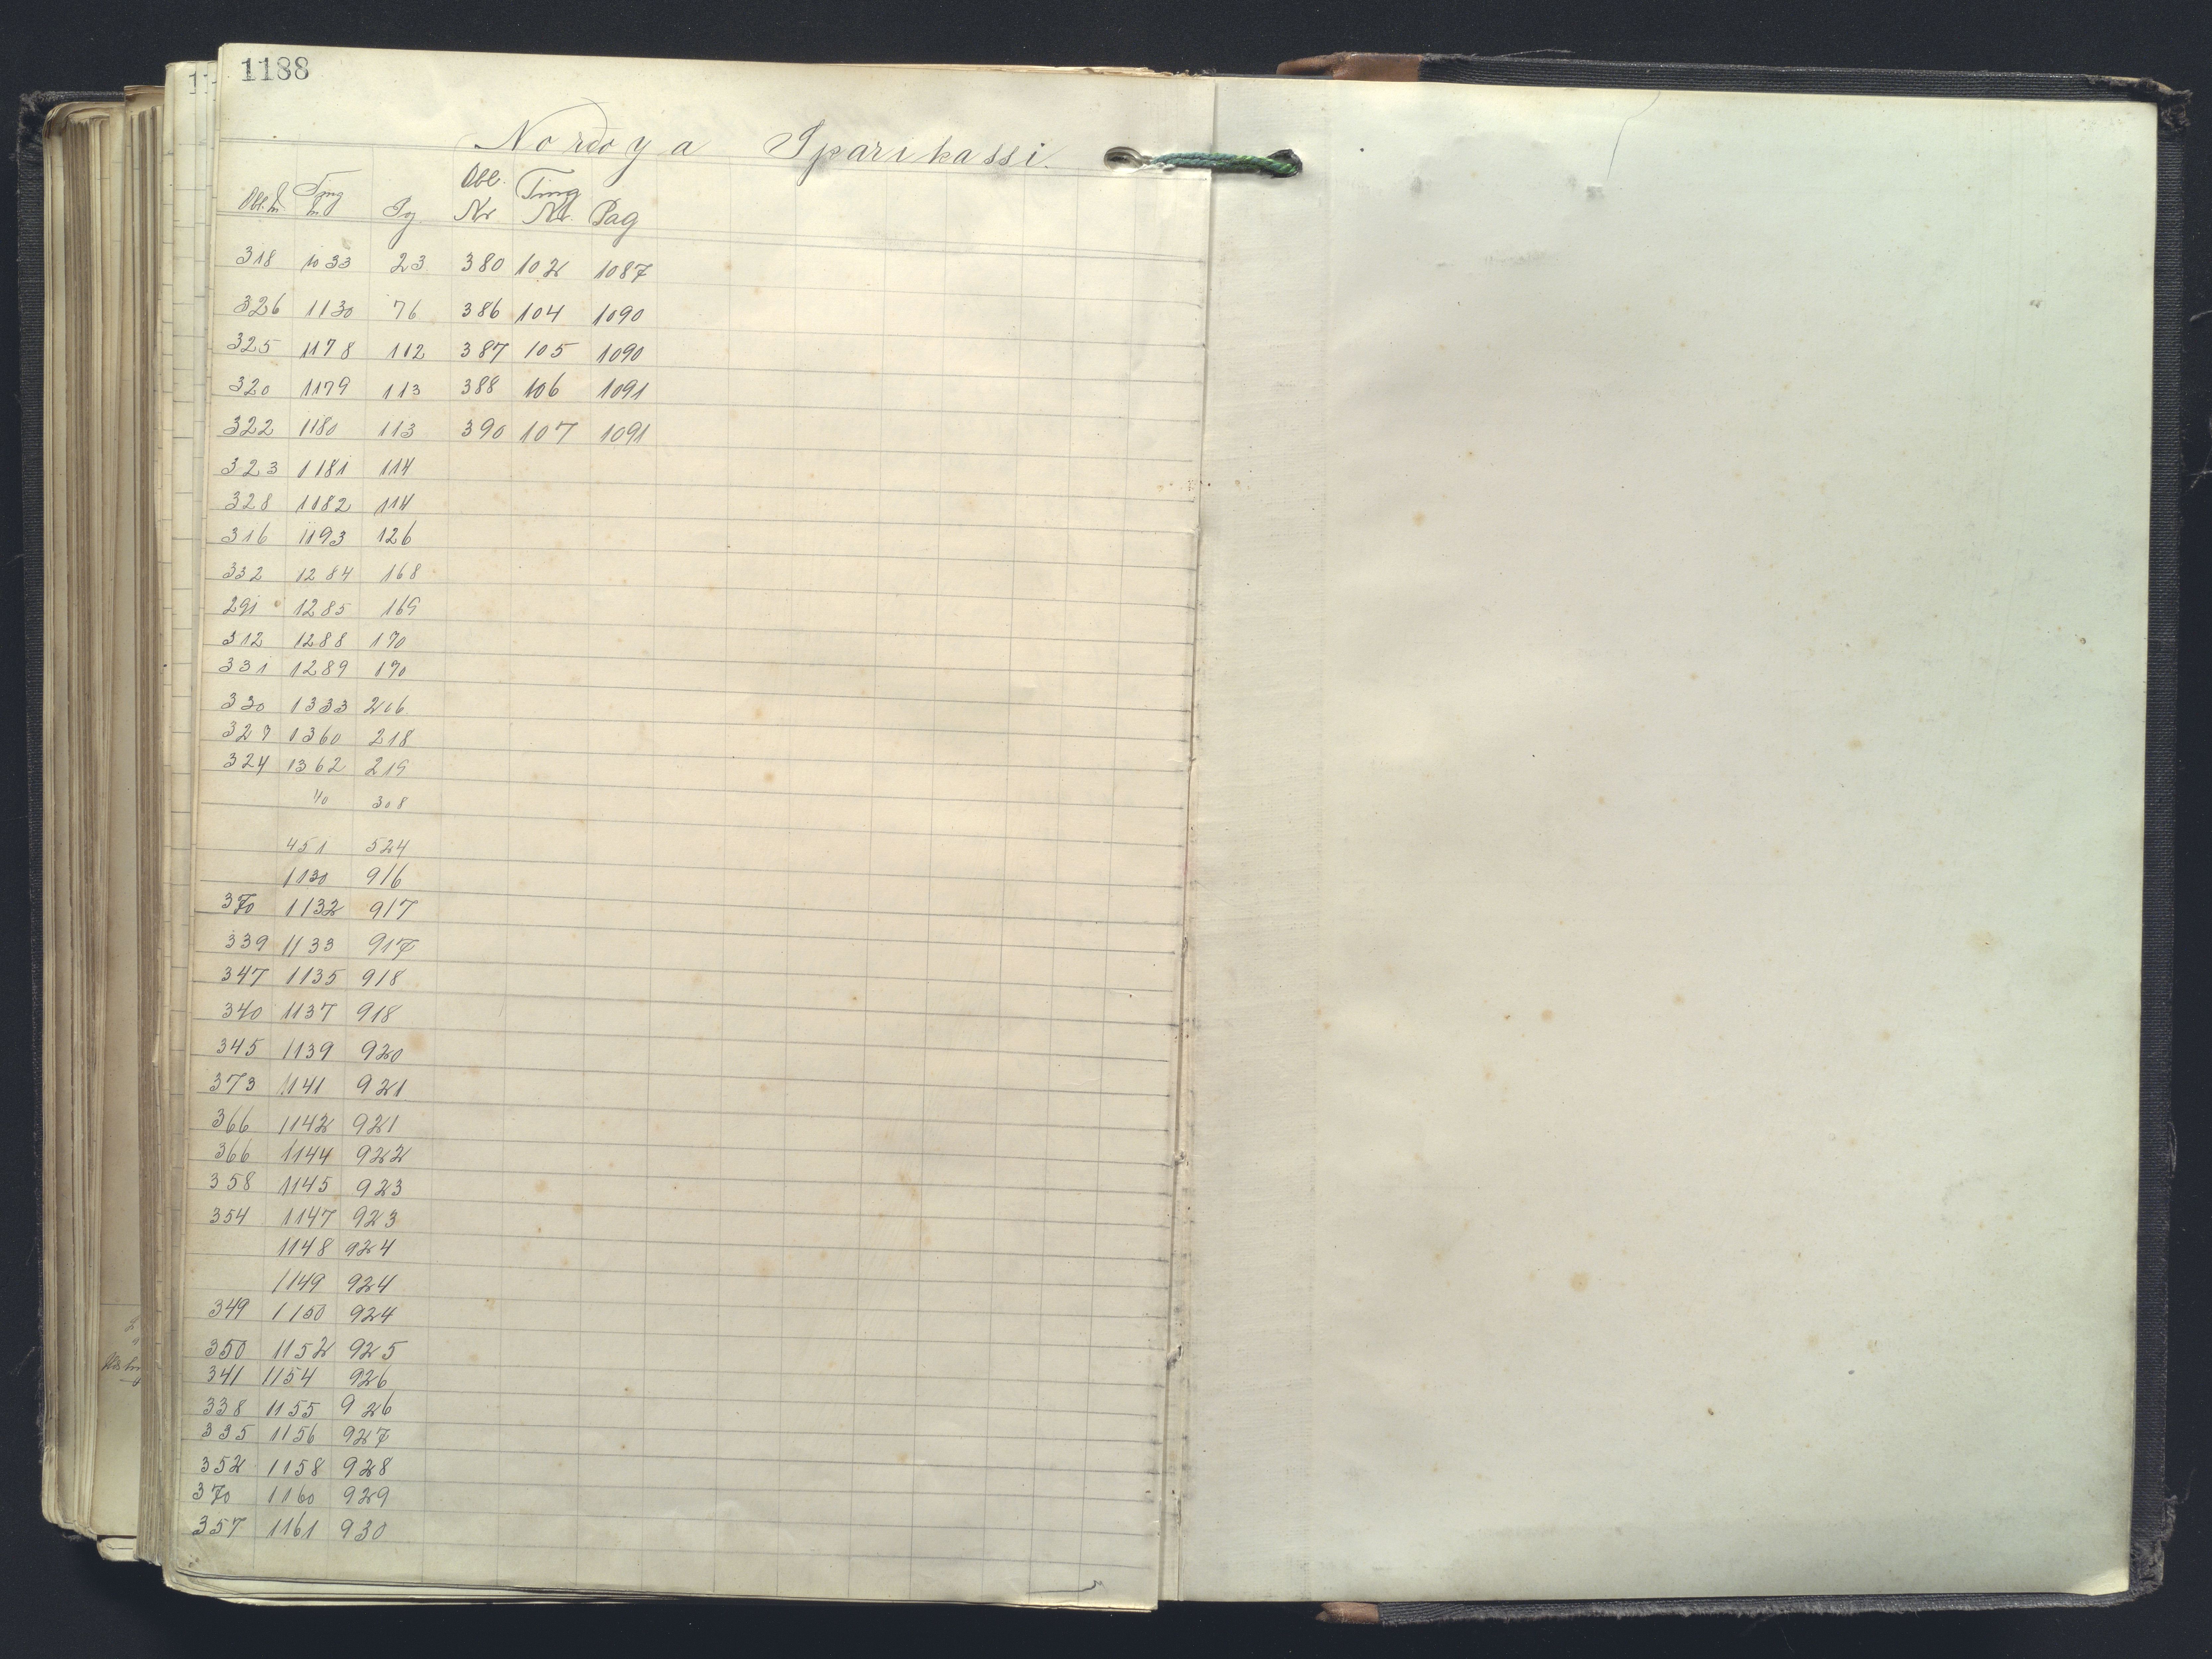 1188
Nordoya Sparikassi.
Obl. Nr Ting Nr Pag Obl. Nr Ting Nr. Pag
318 1033 23 380 102 1087
326 1130 76 386 104 1090
325 1178 112 387 105 1090
320 1179 113 388 106 1091
322 1180 113 390 107 1091
323 1181 114
328 1182 114
316 1193 126
332 1284 168
291 1285 169
312 1288 170
331 1289 170
330 1333 206
327 1360 218
324 1362 219
40 308
451 524
1130 916
370 1132 917
339 1133 917
347 1135 918
340 1137 918
345 1139 920
373 1141 921
366 1142 921
366 1144 922
358 1145 923
354 1147 923
1148 924
1149 924
349 1150 924
350 1152 925
341 1154 926
338 1155 926
335 1156 927
352 1158 928
370 1160 929
357 1161 930